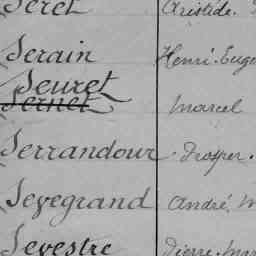 Seret Aristide.
Serain Henri. Euge
Seuret
Sernet Marcel
Serrandour Prosper.
Sevegrand André. M
Sevestre Pierre. Mar